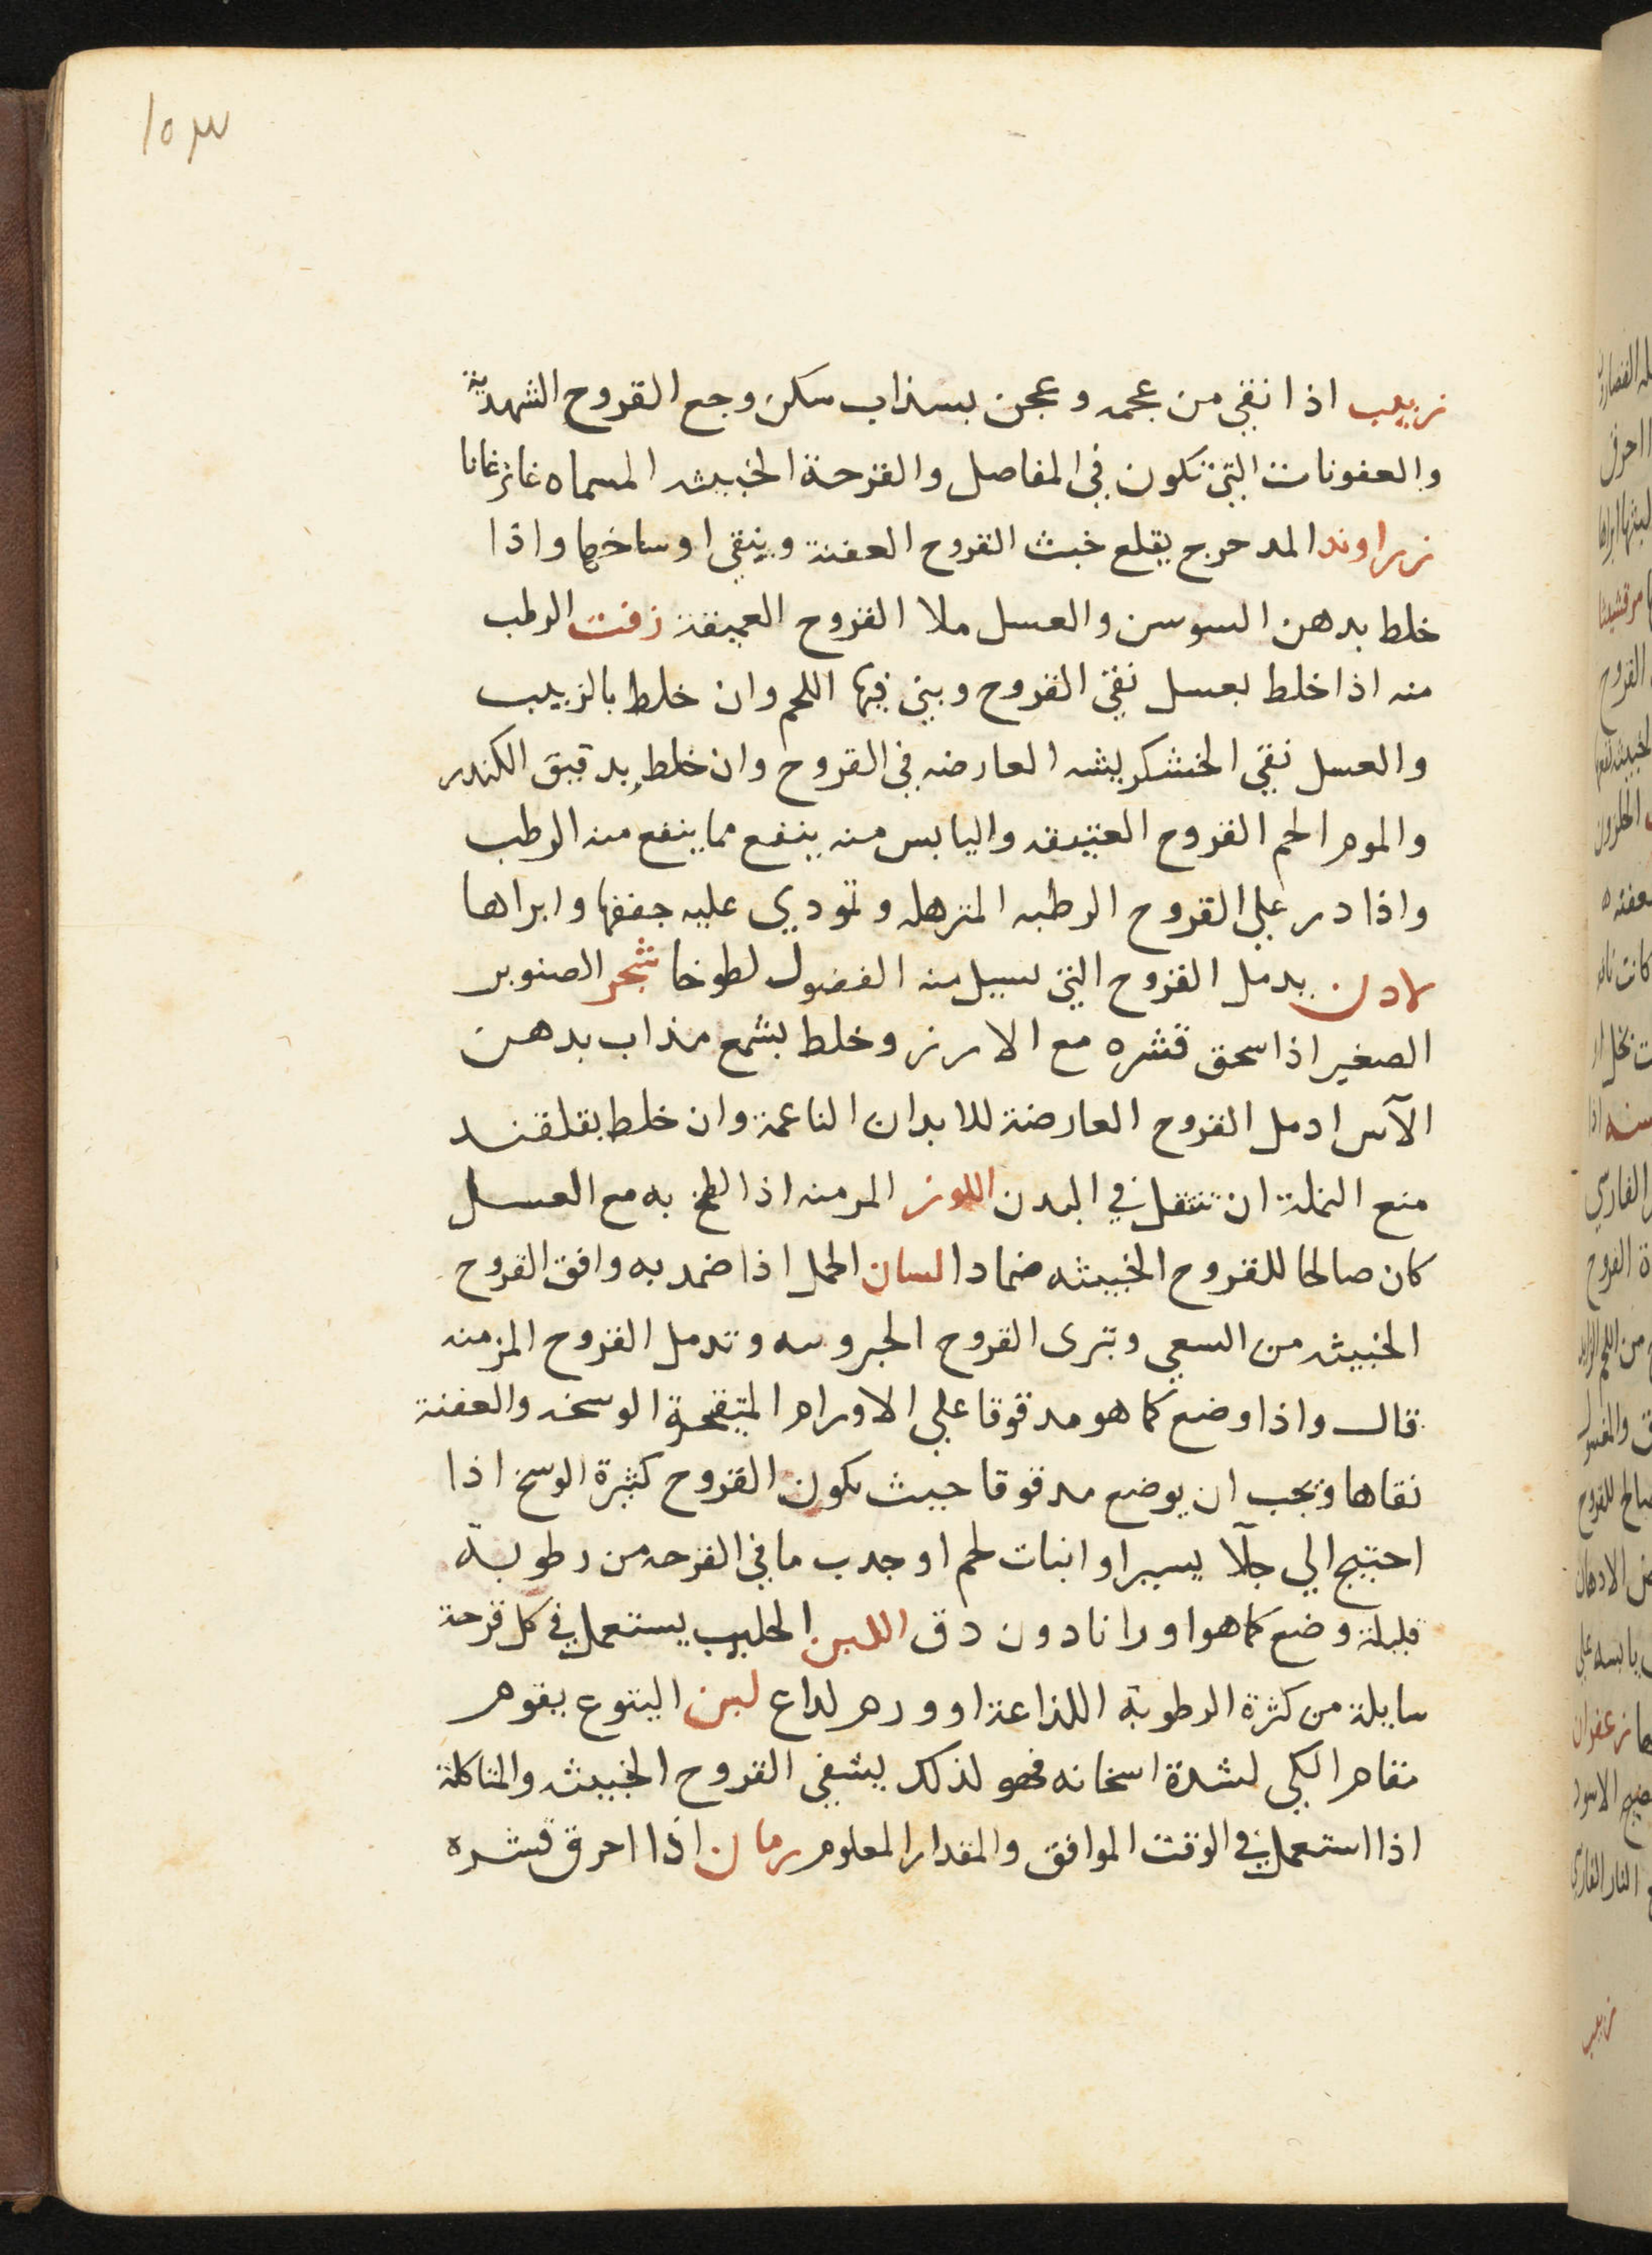 ١٥٣
زبيب اذا نقي من عجمه وعجن بسذاب سكن وجع القروح الشهدية
والعفونات التي تكون في المفاصل والقرحة الخبيثه المسماه غانرغانا
زراوند المدحرج يقلع خبث القروح العفنة وينقي اوساخها واذا
خلط بدهن السوسن والعسل ملا القروح العميقة زفت الرطب
منه اذا خلط بعسل نقي القروح وبني فيها اللحم وان خلط بالزبيب
والعسل نقي الخشكريشه العارضه في القروح وان خلط بدقيق الكندر
والموم الحم القروح العتيقه واليابس منه ينفع مما ينفع منه الرطب
واذا در علي القروح الرطبه المترهله وتمودي عليه جففها وابراها
لادن يدمل القروح التي تسيل منه الفضول لطوخا شجر الصنوبر
الصغير اذا سحق قشره مع الارز وخلط بشمع مذاب بدهن
الآس ادمل القروح العارضة للابدان الناعمة وان خلط بقلقند
منع النملة ان تنتقل في البدن اللوز المر منه اذا لطخ به مع العسل
كان صالحا للقروح الخبيثه ضمادا لسان الحمل اذا ضمد به وافق القروح
الخبيثه من السعي وتبرى القروح الحبروسه وتدمل القروح المزمنه
قال واذا وضع كما هو مدقوقا علي الاورام المتيقحة الوسخه والعفنة
نقاها ويجب ان يوضع مدقوقا حيث تكون القروح كثيرة الوسخ اذا
احتيج الي جلآ يسير او انبات لحم او جدب ما في القرحه من رطوبة
قليلة وضع كما هو اورانا دون دق اللبن الحليب يستعمل في كل قرحة
سايلة من كثرة الرطوبة اللذاعة او ورم لداع لبن اليتوع يقوم
مقام الكي لشدة اسخانه فهو لذلك يشفي القروح الخبيثه والمتاكلة
اذا استعمل في الوقت الموافق والمقدار المعلوم رمان اذا احرق قشره
زبيب